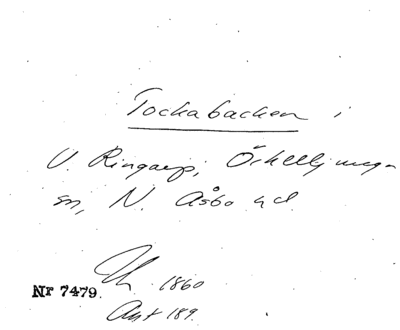 Tockabacken i
V. Ringarp, Örkelljunga
sn, N. Åsbo hd.
1860
Nr 7479.
Ant 189.